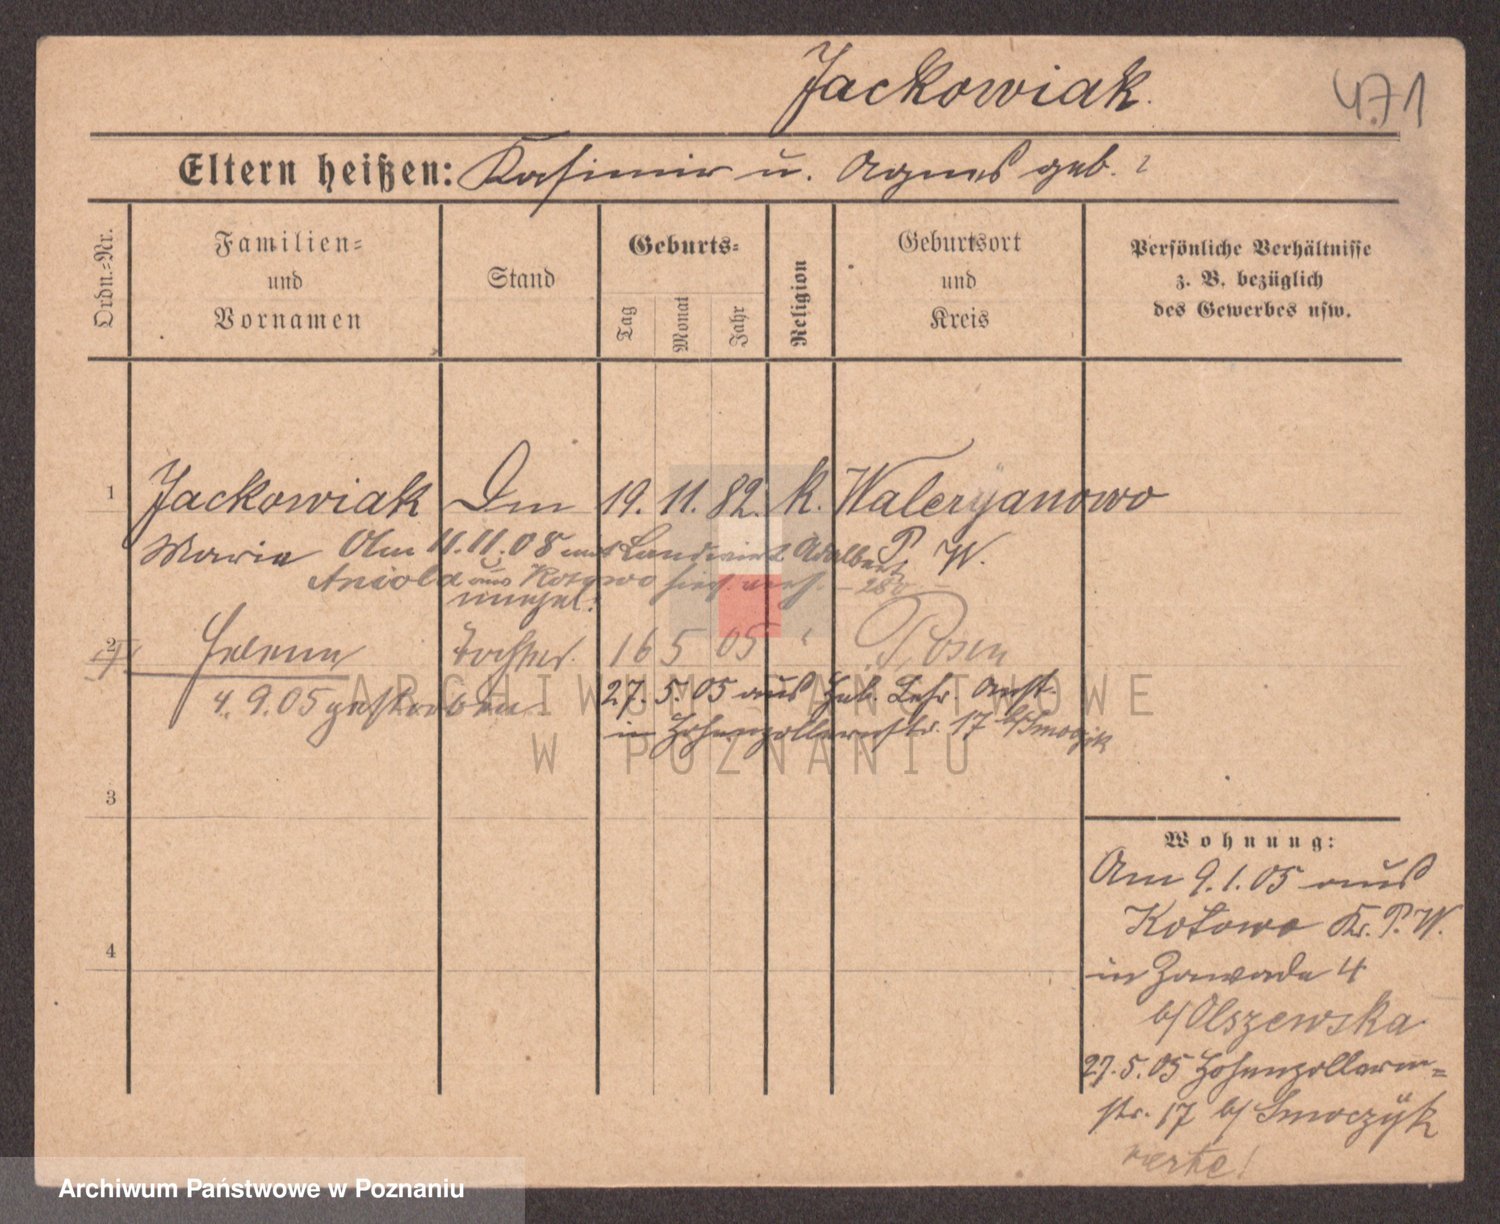 Jackowiak.
471
Eltern heißen: Kasimir u. Agnes geb. ?
Ordn.=Nr.
Familien=
und
Vornamen
Stand
Geburts=
Tag
Monat
Jahr
Religion
Geburtsort
und
Kreis
Persönliche Verhältnisse
z. B. bezüglich
des Gewerbes usw.
1 Jackowiak Dm 19. 11. 82. k. Waleryanowo
Maria P. W.
Am 11.11.08 mit Landwirt Adalbert
Aniola aus Kotowo hier verh. – 280
unehel.
2 Helene Tochter 16 5 05 " Posen
4. 9. 05 gestorben
27. 5. 05 aus Heb. Lehr. Anst.
in Hohenzollernstr. 17 b/Smoczyk
3
4
Wohnung:
Am 9.1.05 aus
Kotowo Kr. P. W.
in Zawade 4
b/Olszewska
27.5.05 Hohenzollern=
str. 17 b/ Smoczÿk
verte!
ARCHIWUM PAŃSTWOWE
W POZNANIU
Archiwum Państwowe w Poznaniu